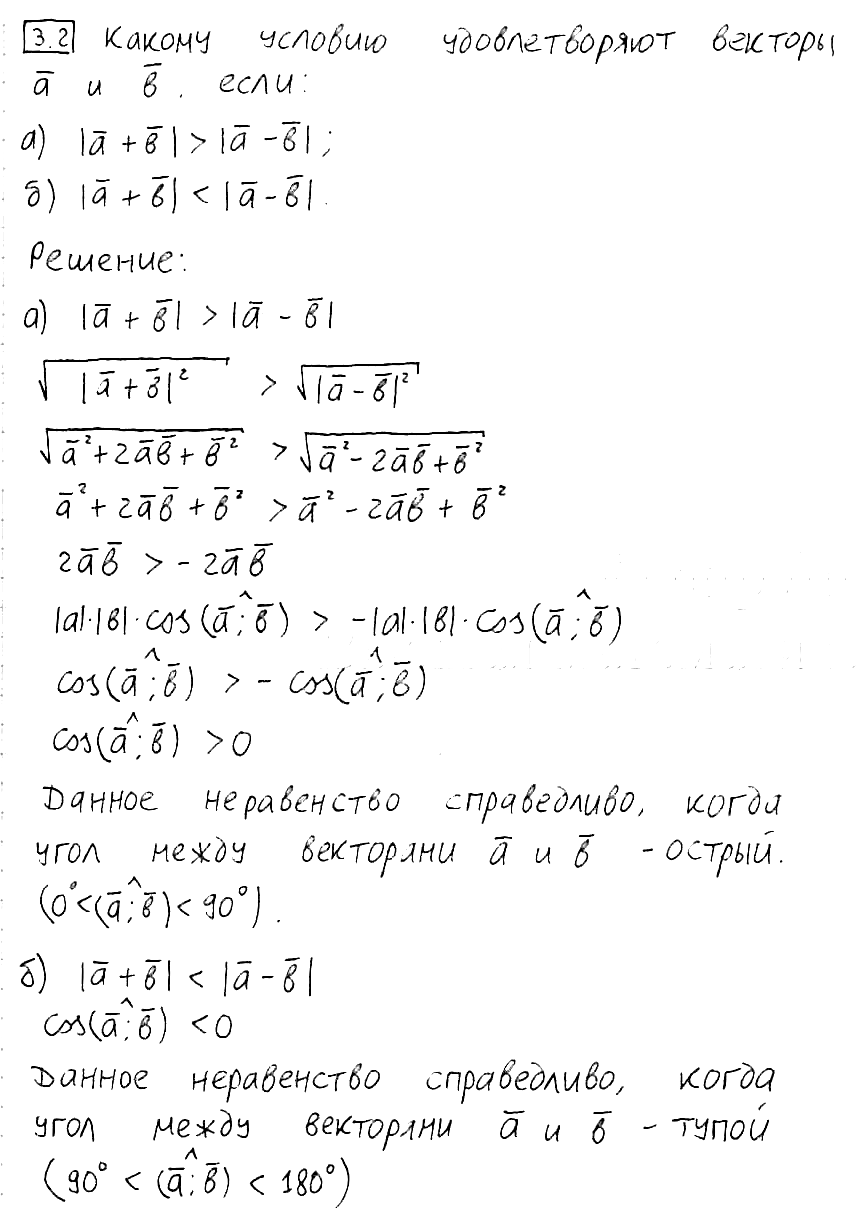 3.2 Какому условию удовлетворяют векторы
a̅ и b̅, если:
а) |a̅ + b̅| > |a̅ - b̅|;
б) |a̅ + b̅| < |a̅ - b̅|.
Решение:
а) |a̅ + b̅| > |a̅ - b̅|
√(|a̅ + b̅|²) > √(|a̅ - b̅|²)
√(a̅² + 2a̅b̅ + b̅²) > √(a̅² - 2a̅b̅ + b̅²)
a̅² + 2a̅b̅ + b̅² > a̅² - 2a̅b̅ + b̅²
2a̅b̅ > - 2a̅b̅
|a|·|b|·cos(a̅;^b̅) > -|a|·|b|·cos(a̅;^b̅)
cos(a̅;^b̅) > - cos(a̅;^b̅)
cos(a̅;^b̅) > 0
Данное неравенство справедливо, когда
угол между векторами a̅ и b̅ - острый.
(0° < (a̅;^b̅) < 90°).
б) |a̅ + b̅| < |a̅ - b̅|
cos(a̅;^b̅) < 0
Данное неравенство справедливо, когда
угол между векторами a̅ и b̅ - тупой
(90° < (a̅;^b̅) < 180°)